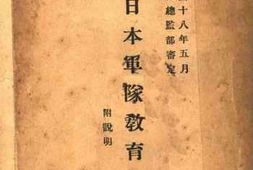 十八年五月
總監部審定
日本軍隊教育
附說明